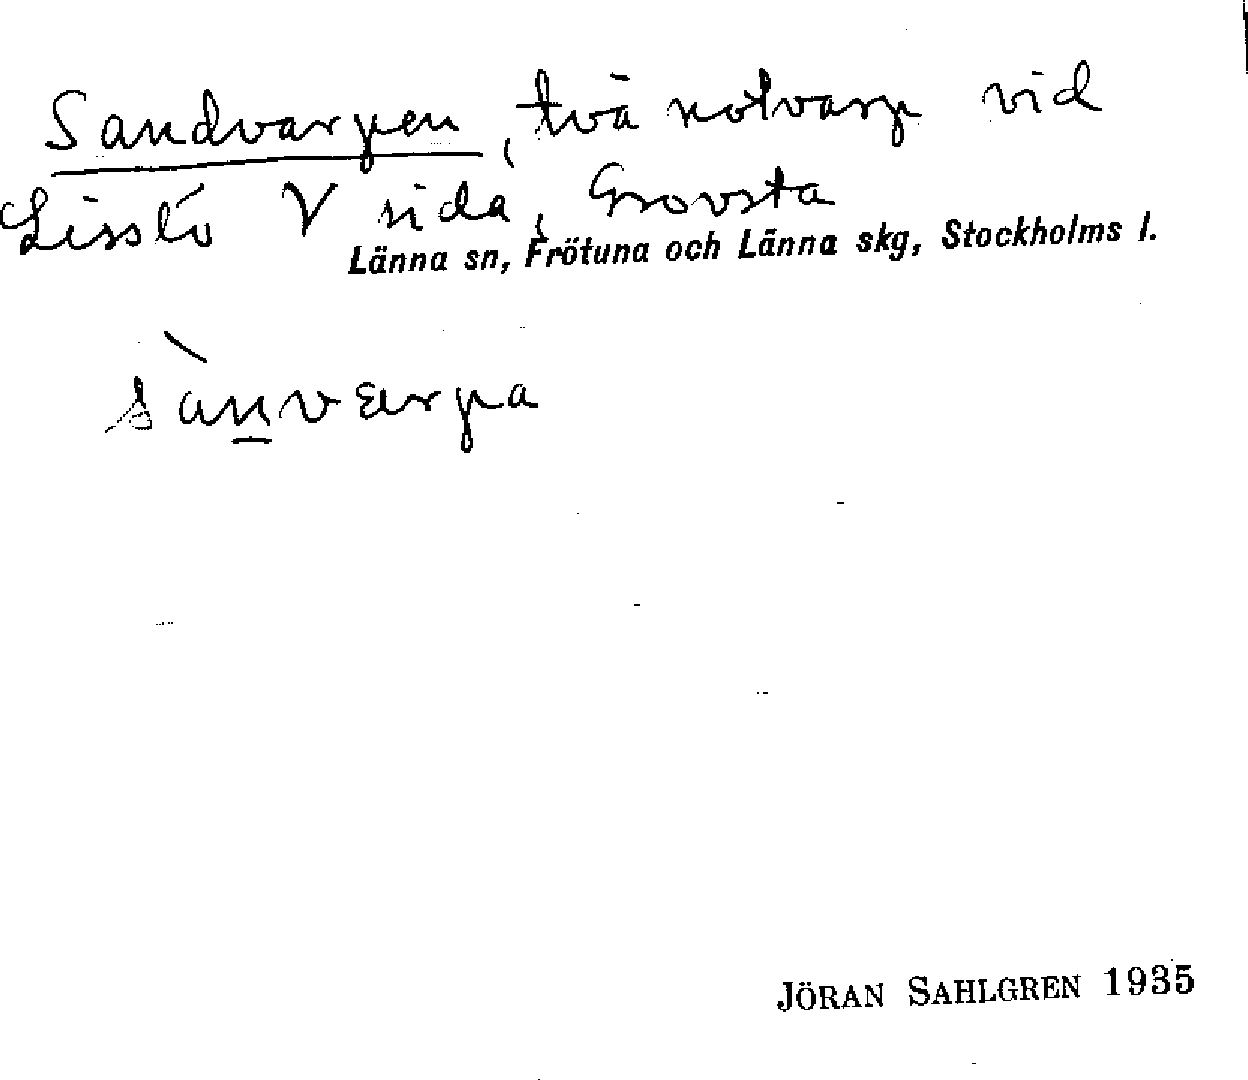 Sandvarpen, två notvarp vid
Lisslö V sida, Grovsta
Länna sn, Frötuna och Länna skg, Stockholms l.
sànvarpa
JÖRAN SAHLGREN 1935